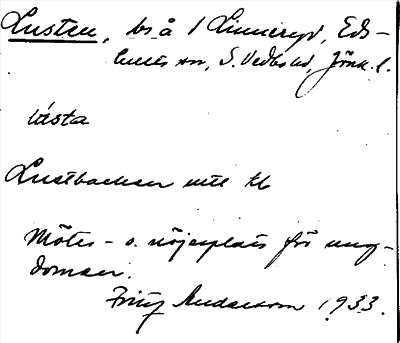 Lusten, bs å 1 Linneryd, Eds-
hults sn, S. Vedbo hd, Jönk. l.
lùsta
Lustbacken intill tk
Mötes- o. nöjesplats för ung-
domen.
Fritz Andersson 1933.